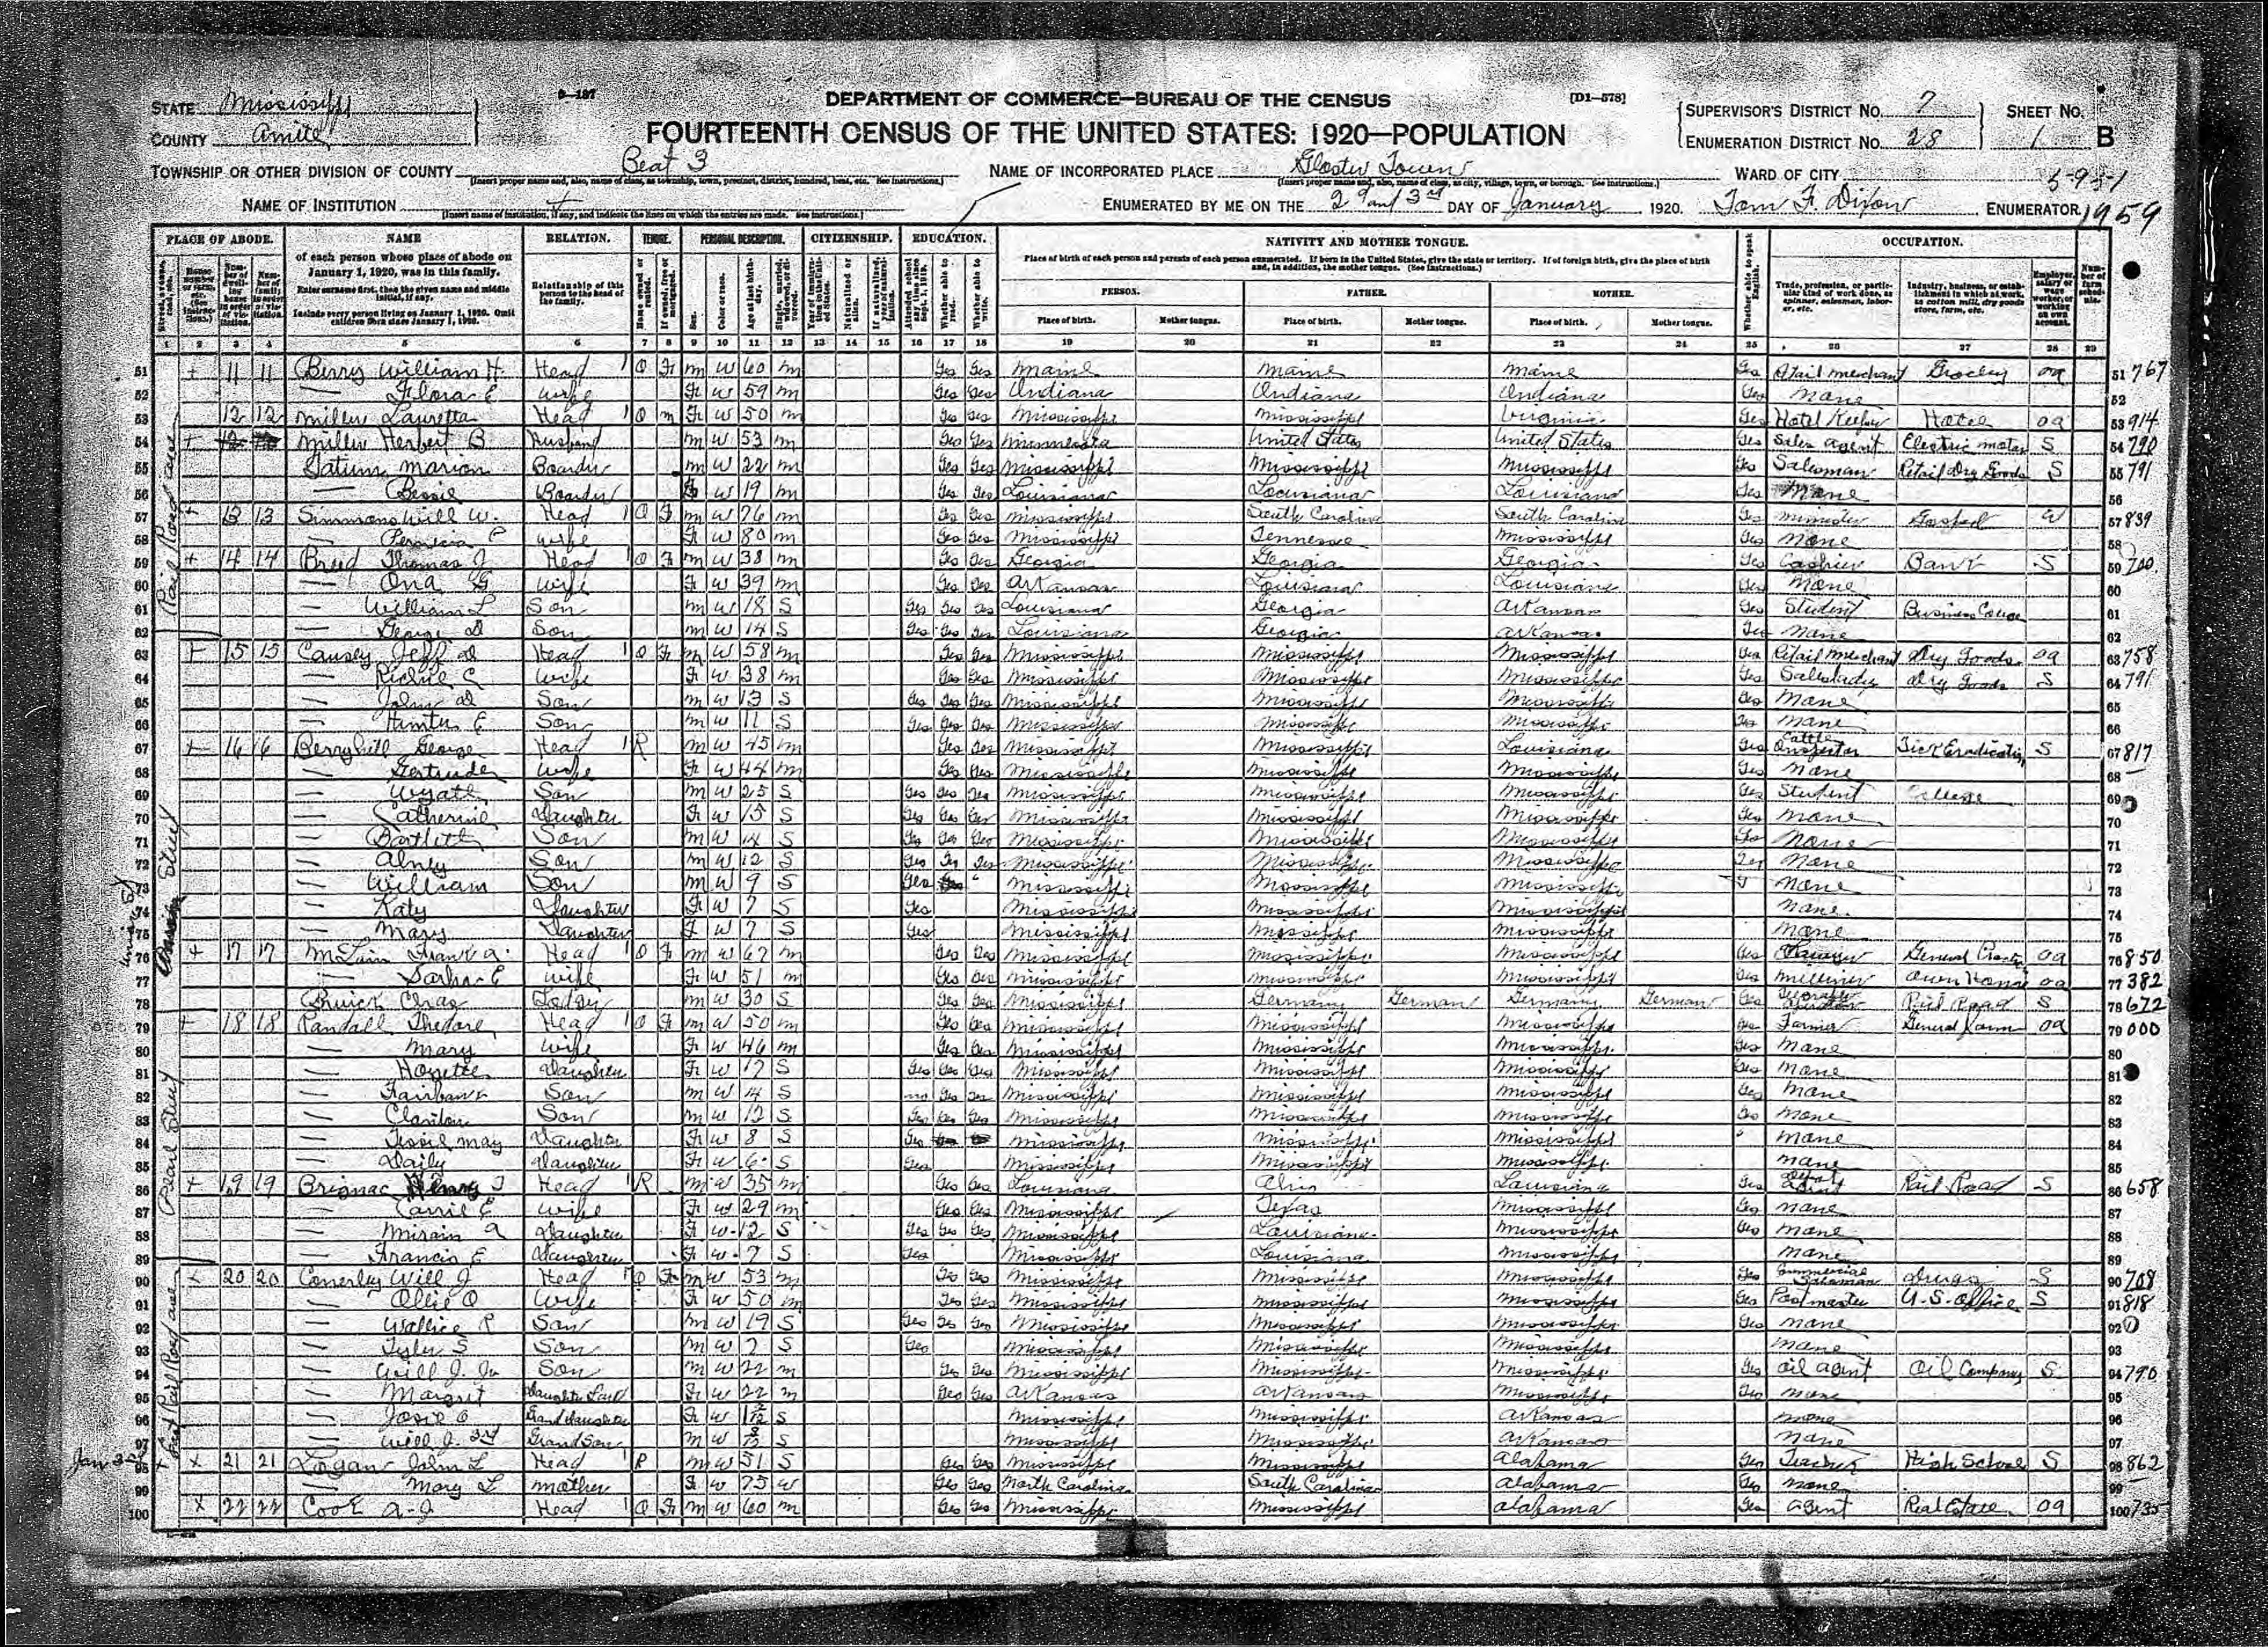 STATE Mississippi
COUNTY Amite
9—137
DEPARTMENT OF COMMERCE—BUREAU OF THE CENSUS
[D1—578]
FOURTEENTH CENSUS OF THE UNITED STATES: 1920—POPULATION
SUPERVISOR'S DISTRICT NO. 7
ENUMERATION DISTRICT NO. 28
SHEET NO. 1 B
TOWNSHIP OR OTHER DIVISION OF COUNTY Beat 3
NAME OF INCORPORATED PLACE Gloster Town
WARD OF CITY
5-951
NAME OF INSTITUTION X
ENUMERATED BY ME ON THE 2nd and 3rd DAY OF January, 1920. Tom F. Dixon, ENUMERATOR
1959
PLACE OF ABODE. NAME RELATION. TENURE. PERSONAL DESCRIPTION. CITIZENSHIP. EDUCATION. NATIVITY AND MOTHER TONGUE. OCCUPATION.
of each person whose place of abode on January 1, 1920, was in this family.
Enter surname first, then the given name and middle initial, if any.
Include every person living on January 1, 1920. Omit children born since January 1, 1920.
Relationship of this person to the head of the family.
Place of birth of each person and parents of each person enumerated. If born in the United States, give the state or territory. If of foreign birth, give the place of birth and, in addition, the mother tongue. (See instructions.)
PERSON. FATHER. MOTHER.
Place of birth. Mother tongue. Place of birth. Mother tongue. Place of birth. Mother tongue.
1 2 3 4 5 6 7 8 9 10 11 12 13 14 15 16 17 18 19 20 21 22 23 24 25 26 27 28 29
51 11 11 Berry William H. Head O F M W 60 M Yes Yes Maine Maine Maine Yes Retail merchant Grocery OA 51 767
52 — Flora E wife F W 59 M Yes Yes Indiana Indiana Indiana Yes None 52
53 12 12 Miller Lauretta Head O M F W 50 M Yes Yes Mississippi Mississippi Virginia Yes Hotel Keeper Hotel OA 53 914
54 Miller Herbert B Husband M W 53 M Yes Yes Minnesota United States United States Yes Sales agent Electric motor S 54 790
55 Tatum Marion Boarder M W 22 M Yes Yes Mississippi Mississippi Mississippi Yes Salesman Retail Dry Goods S 55 791
56 — Bessie Boarder F W 19 M Yes Yes Louisiana Louisiana Louisiana Yes None 56
57 13 13 Simmons Will W. Head O F M W 76 M Yes Yes Mississippi South Carolina South Carolina Yes Minister Gospel W 57 839
58 — wife F W 80 M Yes Yes Mississippi Tennessee Mississippi Yes None 58
59 14 14 Breed Thomas J Head O F M W 38 M Yes Yes Georgia Georgia Georgia Yes Cashier Bank S 59 700
60 — Ona G wife F W 39 M Yes Yes Arkansas Louisiana Louisiana Yes None 60
61 — William L Son M W 18 S Yes Yes Yes Louisiana Georgia Arkansas Yes Student Business College 61
62 — George D Son M W 14 S Yes Yes Yes Louisiana Georgia Arkansas Yes None 62
63 15 15 Causey Jeff D Head O F M W 58 M Yes Yes Mississippi Mississippi Mississippi Yes Retail merchant Dry Goods OA 63 758
64 — Richie C wife F W 38 M Yes Yes Mississippi Mississippi Mississippi Yes Saleslady Dry Goods S 64 791
65 — John D Son M W 13 S Yes Yes Yes Mississippi Mississippi Mississippi Yes None 65
66 — Hunter E Son M W 11 S Yes Yes Yes Mississippi Mississippi Mississippi Yes None 66
67 16 16 Berryhill George Head R M W 45 M Yes Yes Mississippi Mississippi Louisiana Yes Cattle Inspector Tick Eradication S 67 817
68 — Gertrude wife F W 44 M Yes Yes Mississippi Mississippi Mississippi Yes None 68
69 — Wyatt Son M W 25 S Yes Yes Yes Mississippi Mississippi Mississippi Yes Student College 69
70 — Catherine Daughter F W 15 S Yes Yes Yes Mississippi Mississippi Mississippi Yes None 70
71 — Bartlett Son M W 14 S Yes Yes Yes Mississippi Mississippi Mississippi Yes None 71
72 — Alney Son M W 12 S Yes Yes Yes Mississippi Mississippi Mississippi Yes None 72
73 — William Son M W 9 S Yes Mississippi Mississippi Mississippi None 73
74 — Katy Daughter F W 7 S Yes Mississippi Mississippi Mississippi None 74
75 — Mary Daughter F W 7 S Yes Mississippi Mississippi Mississippi None 75
76 17 17 McLain Frank A. Head O F M W 67 M Yes Yes Mississippi Mississippi Mississippi Yes Lawyer General Practice OA 76 850
77 — Sarha E wife F W 51 M Yes Yes Mississippi Mississippi Mississippi Yes Milliner Own House OA 77 382
78 Chas M W 30 S Yes Yes Mississippi Germany German Germany German Yes Rail Road S 78 672
79 18 18 Randall Head O F M W 50 M Yes Yes Mississippi Mississippi Mississippi Yes Farmer General Farm OA 79 000
80 — Mary wife F W 46 M Yes Yes Mississippi Mississippi Mississippi Yes None 80
81 — Daughter F W 17 S Yes Yes Yes Mississippi Mississippi Mississippi Yes None 81
82 — Fairbank Son M W 14 S no Yes Yes Mississippi Mississippi Mississippi Yes None 82
83 — Clanton Son M W 12 S Yes Yes Yes Mississippi Mississippi Mississippi Yes None 83
84 — Jessie May Daughter F W 8 S Yes Mississippi Mississippi Mississippi None 84
85 — Daily Daughter F W 6 S Yes Mississippi Mississippi Mississippi None 85
86 19 19 Brignac Henry J Head R M W 35 M Yes Yes Louisiana Louisiana Yes Rail Road S 86 658
87 — Carrie E wife F W 29 M Yes Yes Mississippi Texas Mississippi Yes None 87
88 — Miriam A Daughter F W 12 S Yes Yes Yes Mississippi Louisiana Mississippi Yes None 88
89 — Francis E Daughter F W 7 S Yes Mississippi Louisiana Mississippi None 89
90 20 20 Conerley Will J Head O F M W 53 M Yes Yes Mississippi Mississippi Mississippi Yes Commercial Salesman Drugs S 90 708
91 — Ollie O Wife F W 50 M Yes Yes Mississippi Mississippi Mississippi Yes Postmaster U.S. Office S 91 818
92 — Wallice R Son M W 19 S Yes Yes Yes Mississippi Mississippi Mississippi Yes None 92
93 — Tyler S Son M W 7 S Yes Mississippi Mississippi Mississippi None 93
94 — Will J. Jr Son M W 22 M Yes Yes Mississippi Mississippi Mississippi Yes Oil agent Oil Company S 94 790
95 — Margret Daughter in Law F W 22 M Yes Yes Arkansas Arkansas Mississippi Yes None 95
96 — Josie O Grand Daughter F W S Mississippi Mississippi Arkansas None 96
97 — Will J. 3rd Grand Son M W S Mississippi Mississippi Arkansas None 97
Jan 3rd 98 X 21 21 Logan John L Head R M W 51 S Yes Yes Mississippi Mississippi Alabama Yes Teacher High School S 98 862
99 — Mary L Mother F W 75 W Yes Yes North Carolina South Carolina Alabama Yes None 99
100 X 22 22 Cook A. J Head O F M W 60 M Yes Yes Mississippi Mississippi Alabama Yes Agent Real Estate OA 100 735
Rail Road Ave
Pearl Street
East Rail Road Ave